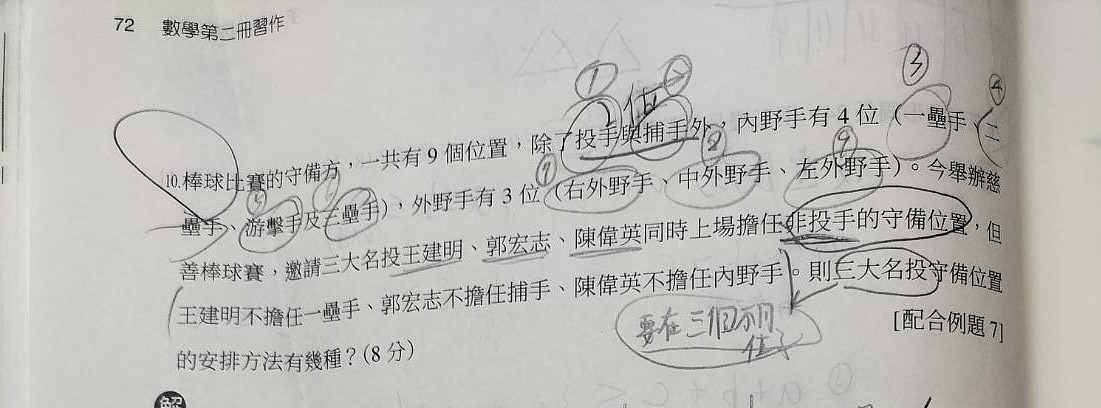 72 數學第二冊習作
① ② ③ ④
位
10.棒球比賽的守備方，一共有 9 個位置，除了投手與捕手外，內野手有 4 位（一壘手、二
⑤ ⑦ ⑧ ⑨
壘手、游擊手及三壘手），外野手有 3 位（右外野手、中外野手、左外野手）。今舉辦慈
善棒球賽，邀請三大名投王建明、郭宏志、陳偉英同時上場擔任非投手的守備位置，但
王建明不擔任一壘手、郭宏志不擔任捕手、陳偉英不擔任內野手。則三大名投守備位置
的安排方法有幾種？(8 分)
[配合例題 7]
要在三個不同
位子
解